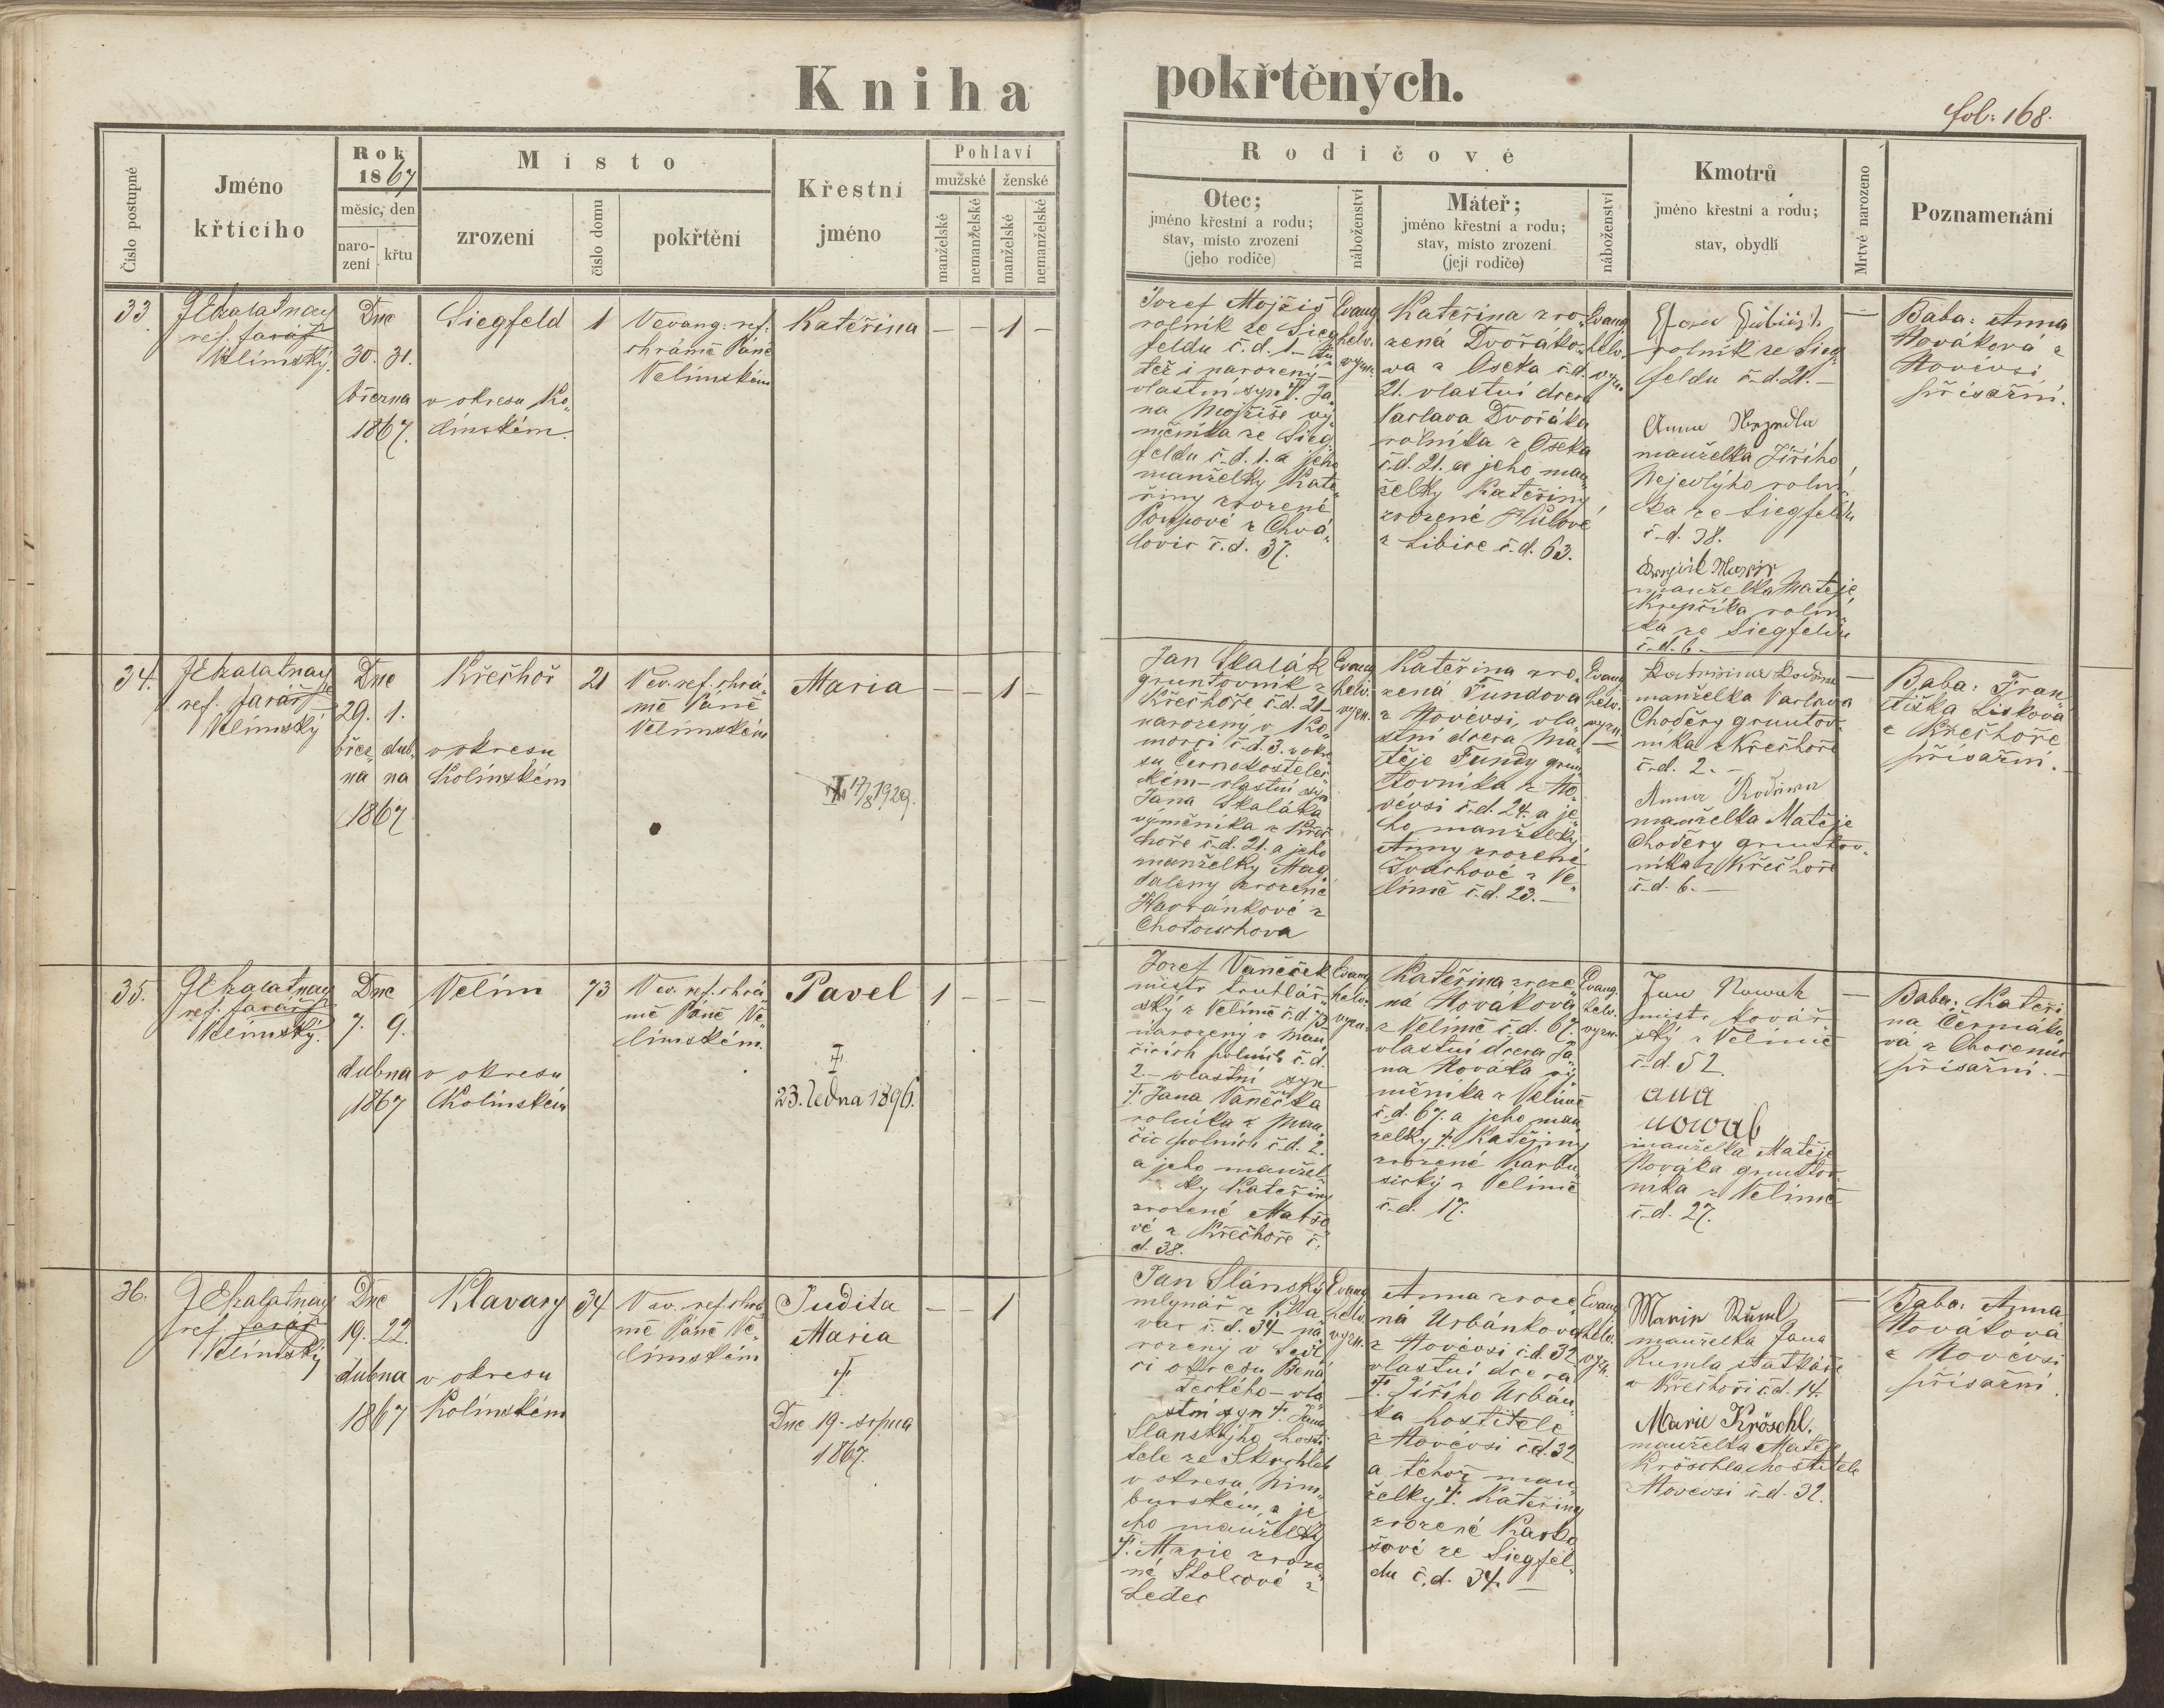 Kniha pokřtěných.
fol. 168.
Číslo postupné
Jméno
křtícího
Rok
1867
měsíc, den
naro-
zení
křtu
Místo
zrození
číslo domu
pokřtění
Křestní
jméno
Pohlaví
mužské
ženské
manželské
nemanželské
manželské
nemanželské
Rodičové
Otec;
jméno křestní a rodu;
stav, místo zrození
(jeho rodiče)
náboženství
Máteř;
jméno křestní a rodu;
stav, místo zrození
(její rodiče)
náboženství
Kmotrů
jméno křestní a rodu;
stav, obydlí
Mrtvě narozeno
Poznamenání
33.
ref. farář
Velímský.
Dne
30. 31.
března
1867.
Siegfeld
v okresu Ko„
línském.
1
V evang: ref.
chrámě Páně
Velímském
Kateřina
– – 1 –
Jozef Mojžíš
rolník ze Sieg„
feldu č.d. 1.– tu
též i narozený–
vlastní syn †. Ja„
na Mojžíše vý„
měníka ze Sieg„
feldu č.d. 1. a jeho
manželky Kate„
řiny zrozené
z Chvá„
lovic č.d. 37.
Evang.
helv.
vyzn.
Kateřina zro„
zená Dvořáko„
va z Oseka č.d.
21. vlastní dcera
Václava Dvořáka
rolníka z Oseka
č.d. 21. a jeho man„
želky Kateřiny
zrozené Hůlové
z Libice č.d. 63.
Evang
helv.
vyzn.
rolník ze Sieg„
feldu č.d. 21.–
Anna
manželka Jiřího
Nejedlýho rolní„
ka ze Siegfeldu
č.d. 38.
manželka Matěje
Krupčíka rolní„
ka ze Siegfeldu
č.d. 6.–
–
Baba: Anna
Nováková z
Novévsi
přísažní.
34.
ref. farář
Velímský
Dne
29. 1.
břez„ dub„
na na
1867
Křečhoř
v okresu
Kolínském
21
V ev. ref. chrá„
mě Páně
Velímském
Maria
† 17/8 1929.
– – 1 –
Jan Skalák
gruntovník z
Křečhoře č.d. 21–
narozený v Ko„
morci č.d. 3. v okre
su Černokostelec„
kém– vlastní syn
Jana Skaláka
výměníka z Křeč„
hoře č.d. 21. a jeho
manželky Mag„
daleny zrozené
Havránkové z
Chotouchova
Evang
helv.
vyzn.
Kateřina zro„
zená Fundova
z Novévsi, vla„
stní dcera Ma„
těje Fundy grun„
tovníka z No„
vévsi č.d. 24. a je„
ho manželky
Anny zrozené
Švárhové z Ve„
límě č.d. 23.–
Evang
helv.
vyzn.
manželka Václava
Choděry gruntov„
níka z Křečhoře
č.d. 2.–
Anna
manželka Matěje
Choděry gruntov„
níka z Křečhoře
č.d. 6.–
–
Baba: Fran„
tiška Lisková
z Křečhoře
přísažní.–
35.
ref. farář
Velímský.
Dne
7. 9.
dubna
1867
Velím
v okresu
Kolínském
73
V ev. ref. chrá„
mě Páně Ve„
límském.
Pavel
†
23. ledna 1896.
1 – – –
Jozef Vaněček
mistr truhlář„
ský z Velímě č.d. 73.
narozený v Man„
čicích polních č.d.
2.– vlastní syn
†. Jana Vaněčka
rolníka z Man„
čic polních č.d. 2.
a jeho manžel„
ky Kateřiny
zrozené
vé z Křečhoře č.
d. 38.
Evang
helv.
vyzn.
Kateřina zroze„
ná Novákova
z Velímě č.d. 67.
vlastní dcera Ja„
na Nováka vý„
měníka z Velímě
č.d. 67. a jeho man„
želky †. Kateřiny
zrozené Karbu„
sický z Velímě
č.d. 17.
Evang.
helv.
vyzn.
Jan Nowak
mistr kovář„
ský z Velímě
č.d. 52.
ana
nowak
manželka Matěje
Nováka gruntov„
níka z Velímě
č.d. 27.
–
Baba: Kateři„
na Čermáko„
vá z Chocenic
přísažní.–
36.
ref. farář
Velímský
Dne
19. 22.
dubna
1867
Klavary
v okresu
Kolínském
34
V ev. ref. chrá„
mě Páně Ve„
límském
Judita
Maria
†
Dne 19. srpna
1867.
– – 1
Jan Slánský
mlynář z Kla„
var č.d. 34– na„
rozený v Sedl„
ci okresu Bená„
teckého– vla„
stní syn †. Jana
Slanskýho hosti„
tele ze
v okresu Nim„
burském, a je„
ho manželky
†. Marie zroze„
né Stolcové z
Ledec
Evang
helv.
vyzn.
Anna zroze„
ná Urbánkova
z Novévsi č.d. 32.
vlastní dcera
†. Jiřího Urbán„
ka hostitele
z Novévsi č.d. 32.
a téhož man„
želky †. Kateřiny
zrozené
šové ze Siegfel„
du č.d. 34.–
Evang
helv.
vyzn.
Marie Ruml
manželka Jana
Rumla statkáře
v Křečhoři č.d. 14.
Marie Kröschl.
manželka Matěje
Kröschla hostitele
z Novévsi č.d. 32.
–
Baba: Anna
Nováková
z Novévsi
přísažní.